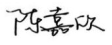 陈嘉欣